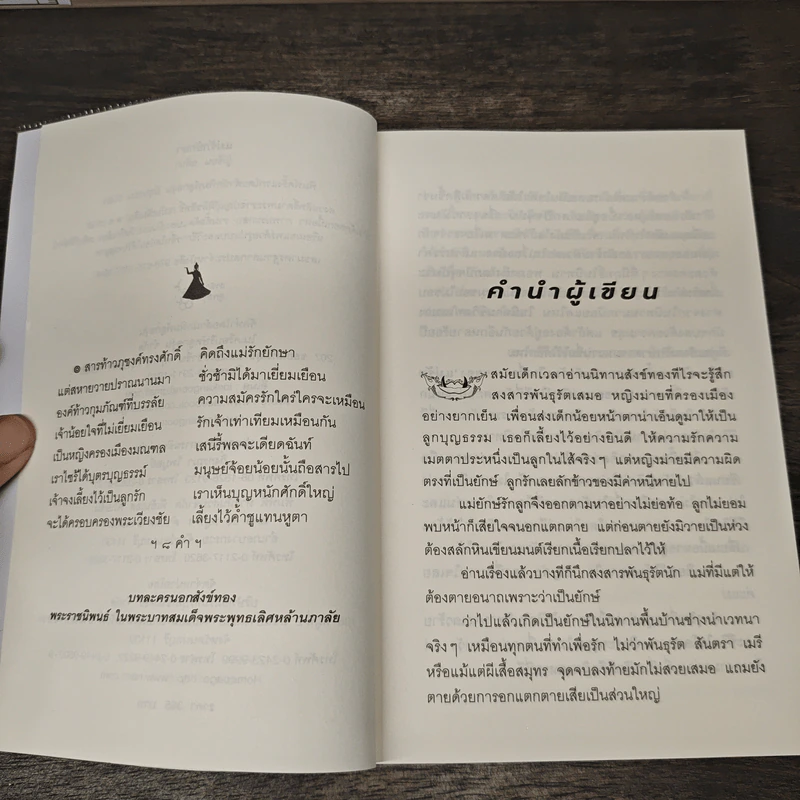 ๏ สารท้าวภุชงค์ทรงศักดิ์ คิดถึงแม่รักยักษา
แต่สหายวายปราณนานมา ชั่วช้ามิได้มาเยี่ยมเยือน
องค์ท้าวกุมภัณฑ์ที่บรรลัย ความสมัครรักใคร่ใครจะเหมือน
เจ้าน้อยใจที่ไม่เยี่ยมเยือน รักเจ้าเท่าเทียมเหมือนกัน
เป็นหญิงครองเมืองมณฑล เสนีรี้พลจะเดียดฉันท์
เราไซร้ได้บุตรบุญธรรม์ มนุษย์จ้อยน้อยนั้นถือสารไป
เจ้าจงเลี้ยงไว้เป็นลูกรัก เราเห็นบุญหนักศักดิ์ใหญ่
จะได้ครอบครองพระเวียงชัย เลี้ยงไว้ค้ำชูแทนหูตา
ฯ ๘ คำ ฯ
บทละครนอกสังข์ทอง
พระราชนิพนธ์ ในพระบาทสมเด็จพระพุทธเลิศหล้านภาลัย
คำนำผู้เขียน
สมัยเด็กเวลาอ่านนิทานสังข์ทองทีไรจะรู้สึก
สงสารพันธุรัตเสมอ หญิงม่ายที่ครองเมือง
อย่างยากเย็น เพื่อนส่งเด็กน้อยหน้าตาน่าเอ็นดูมาให้เป็น
ลูกบุญธรรม เธอก็เลี้ยงไว้อย่างยินดี ให้ความรักความ
เมตตาประหนึ่งเป็นลูกในไส้จริงๆ แต่หญิงม่ายมีความผิด
ตรงที่เป็นยักษ์ ลูกรักเลยลักข้าวของมีค่าหนีหายไป
แม่ยักษ์รักลูกจึงออกตามหาอย่างไม่ย่อท้อ ลูกไม่ยอม
พบหน้าก็เสียใจจนอกแตกตาย แต่ก่อนตายยังมิวายเป็นห่วง
ต้องสลักหินเขียนมนต์เรียกเนื้อเรียกปลาไว้ให้
อ่านเรื่องแล้วบางทีก็นึกสงสารพันธุรัตนัก แม่ที่มีแต่ให้
ต้องตายอนาถเพราะว่าเป็นยักษ์
ว่าไปแล้วเกิดเป็นยักษ์ในนิทานพื้นบ้านช่างน่าเวทนา
จริงๆ เหมือนทุกตนที่ทำเพื่อรัก ไม่ว่าพันธุรัต สันตรา เมรี
หรือแม้แต่ผีเสื้อสมุทร จุดจบลงท้ายมักไม่สวยเสมอ แถมยัง
ตายด้วยการอกแตกตายเสียเป็นส่วนใหญ่